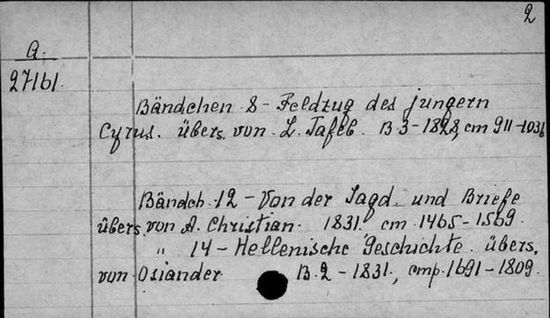 2
A.
27161.
Bändchen 8 - Feldzug des jungern
Cyrus. übers. von L. Tafel. B 3 - 1828, cm 911-1036
Bändch. 12 - Von der Jagd. und Briefe
übers. von A. Christian. 1831. cm 1465-1569.
" 14 - Hellenische Geschichte. übers.
von Osiander B. 2 - 1831., cmp. 1691-1809.